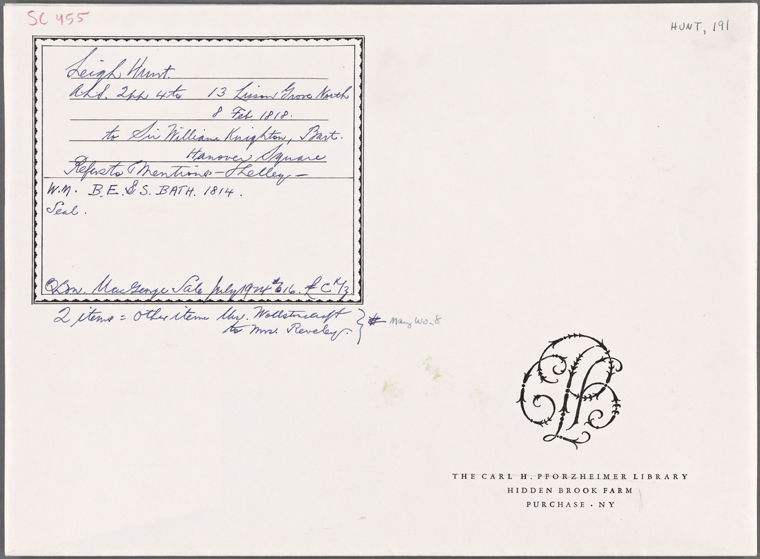 SC 455
HUNT, 191
Leigh Hunt.
A.L.S. 2pp 4to 13 Lisson Grove North
8 Feb 1818.
to Sir William Knighton, Bart.
Hanover Square
Refers to Mentions - Shelley -
W.M. B.E. & S. BATH. 1814.
Seal.
B.W. MacGeorge Sale July 1924 # 616.
2 items = other item Mary Wollstonecraft
to Mrs. Reveley.
Mary Wo. 8
THE CARL H. PFORZHEIMER LIBRARY
HIDDEN BROOK FARM
PURCHASE · NY